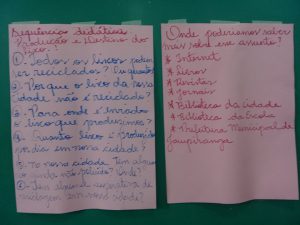 Sequência didática
Produção e Destino do
Lixo:
①- Todos os lixos podem
ser reciclados? Eu questões
②- Por que o lixo da nossa
cidade não é reciclado?
③- Para onde é levado
o lixo que produzimos?
④- Quanto lixo é produzido
por dia em nossa cidade?
⑤- Na nossa cidade tem algum
ainda não poluído? Onde?
⑥- Tem alguma cooperativa de
reciclagem em nossa cidade?
Onde poderíamos saber
mais sobre esse assunto?
* Internet
* Livros
* Revistas
* Jornais
* Biblioteca da Cidade
* Biblioteca da Escola
* Prefeitura Municipal de